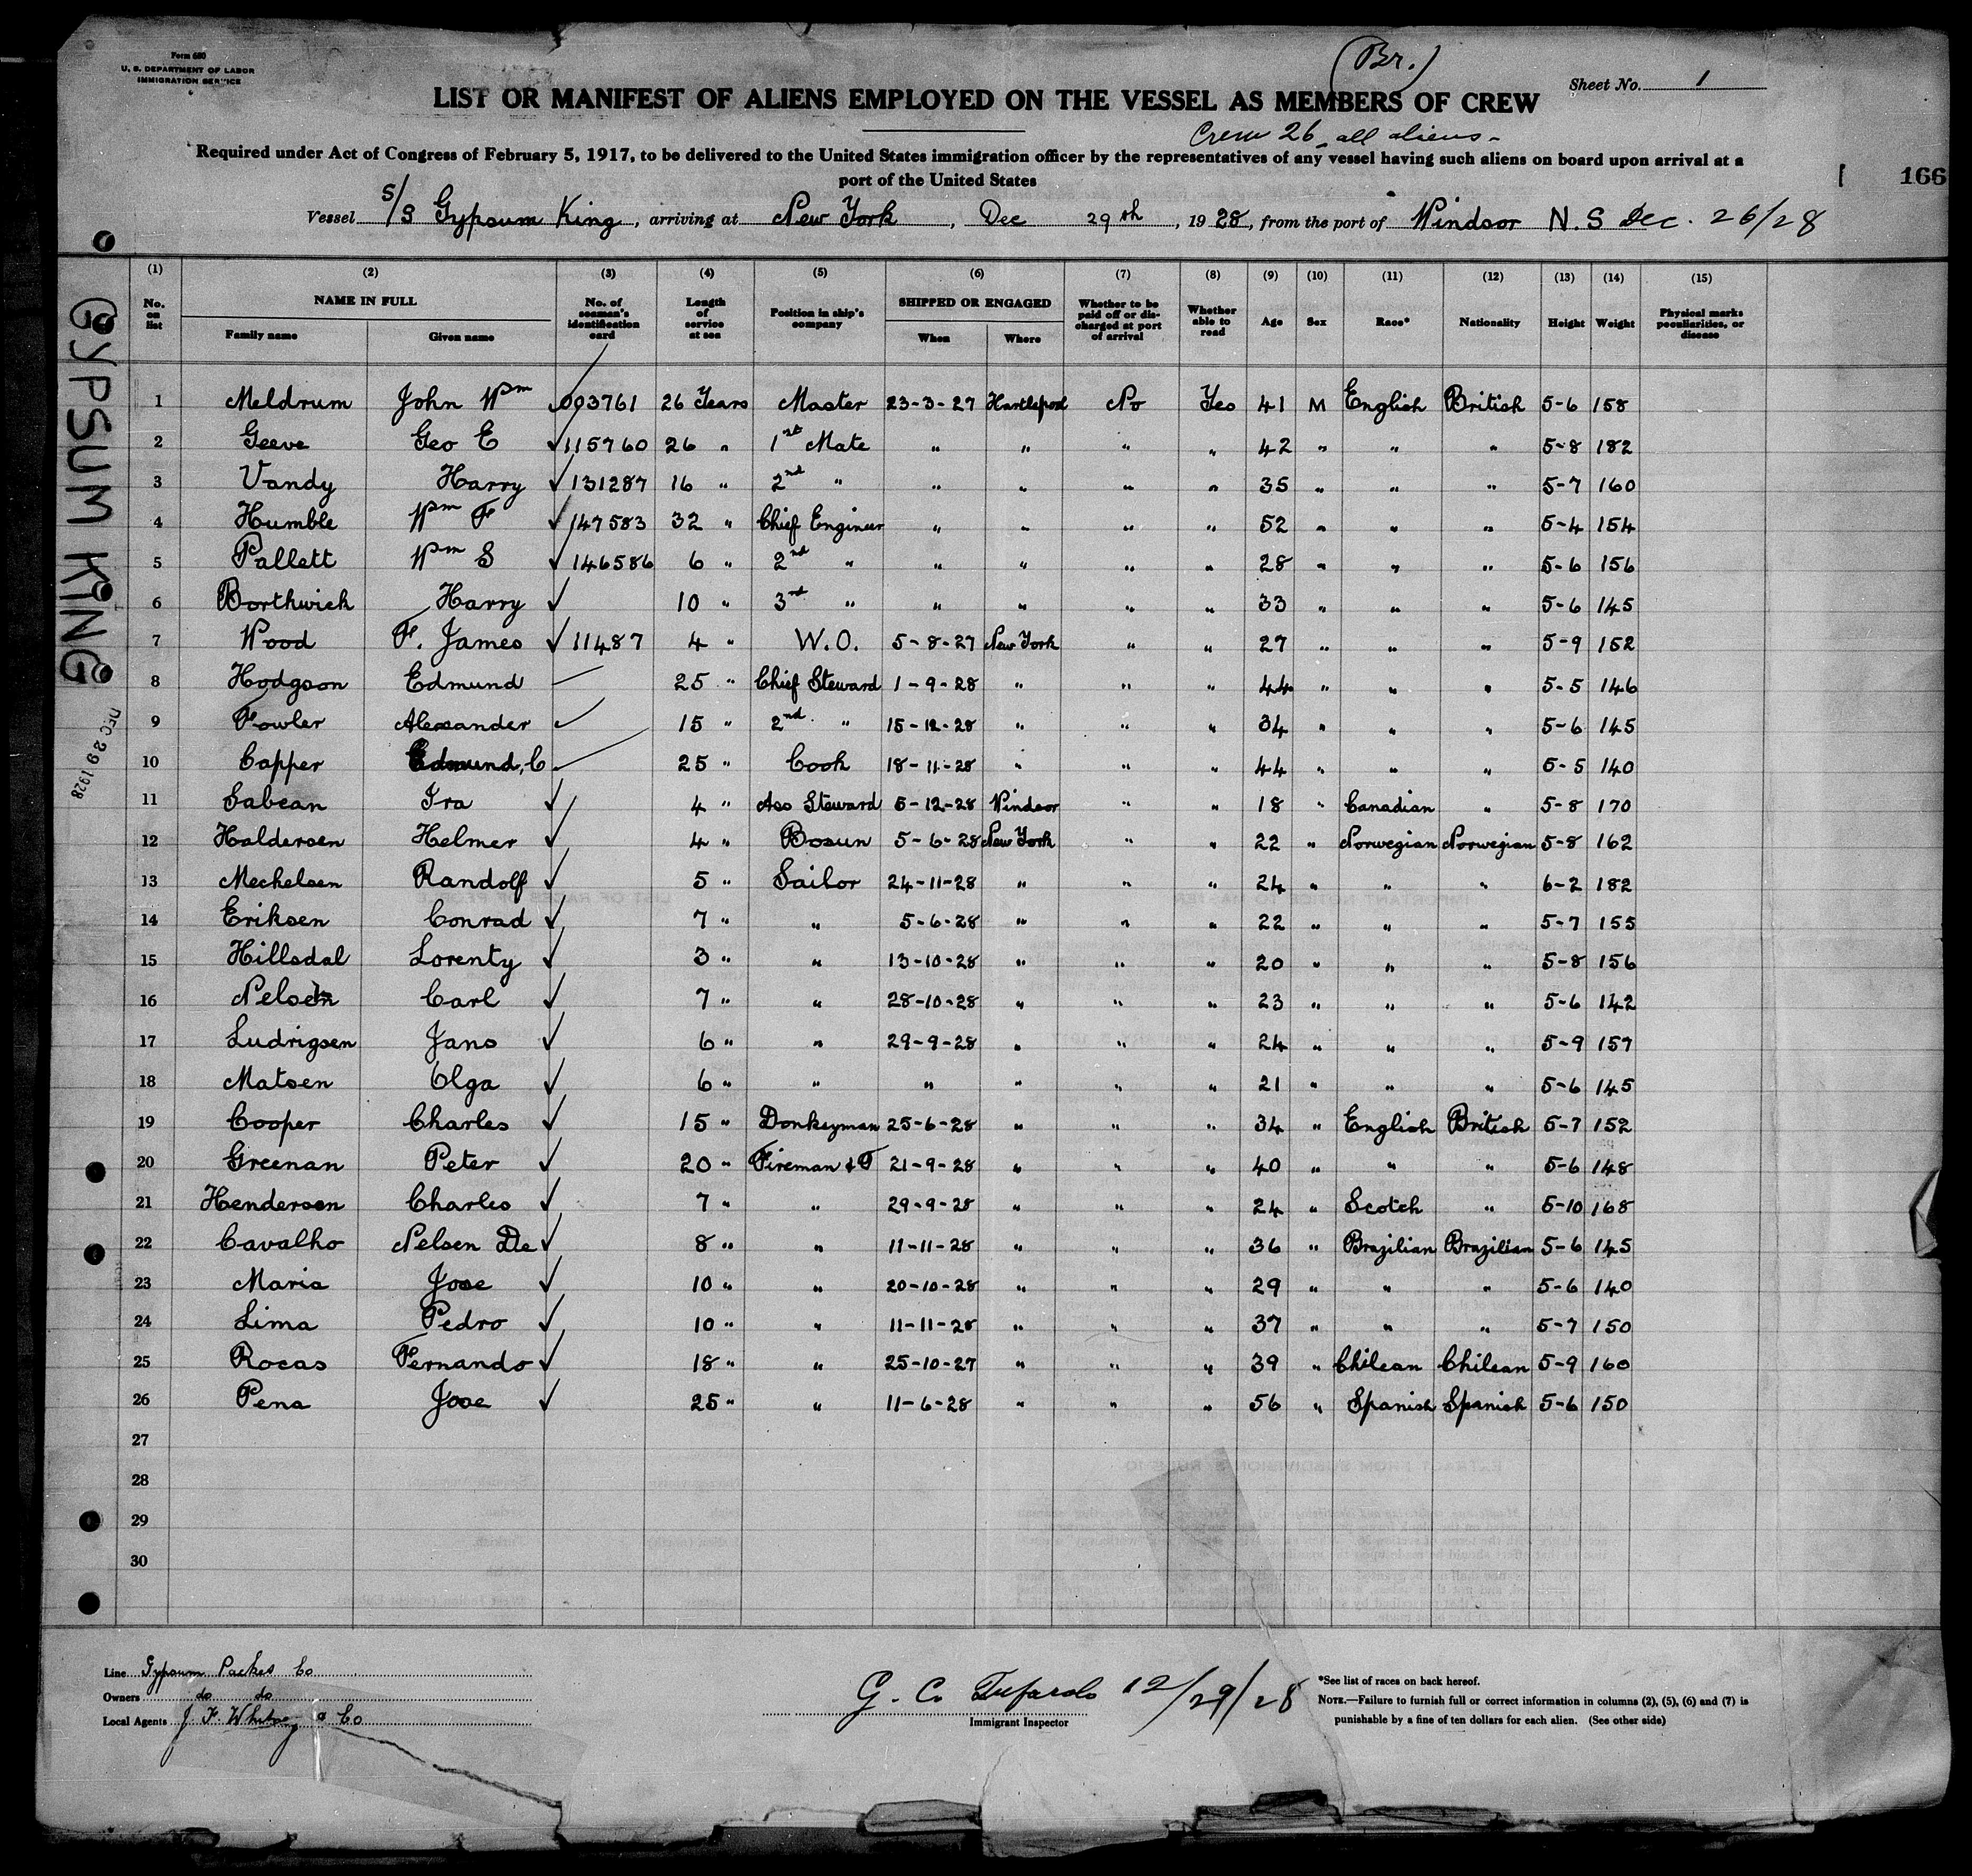 Form 680
U. S. DEPARTMENT OF LABOR
IMMIGRATION SERVICE
(Br.)
Sheet No. 1
LIST OR MANIFEST OF ALIENS EMPLOYED ON THE VESSEL AS MEMBERS OF CREW
Crew 26 all aliens -
Required under Act of Congress of February 5, 1917, to be delivered to the United States immigration officer by the representatives of any vessel having such aliens on board upon arrival at a
port of the United States
166
Vessel S/S Gypsum King, arriving at New York, Dec 29th, 1928, from the port of Windsor N.S Dec. 26/28
GYPSUM KING
DEC 29 1928
(1) (2) (3) (4) (5) (6) (7) (8) (9) (10) (11) (12) (13) (14) (15)
No. on list NAME IN FULL Family name Given name No. of seaman's identification card Length of service at sea Position in ship's company SHIPPED OR ENGAGED When Where Whether to be paid off or discharged at port of arrival Whether able to read Age Sex Race* Nationality Height Weight Physical marks peculiarities, or disease
1 Meldrum John Wm 093761 26 Years Master 23-3-27 Hartlepool No Yes 41 M English British 5-6 158
2 Geeve Geo E ✓ 115760 26 " 1st Mate " " " " 42 " " " 5-8 182
3 Vandy Harry ✓ 131287 16 " 2nd " " " " " 35 " " " 5-7 160
4 Humble Wm F ✓ 147583 32 " Chief Engineer " " " " 52 " " " 5-4 154
5 Pallett Wm S ✓ 146586 6 " 2nd " " " " " 28 " " " 5-6 156
6 Borthwick Harry ✓ 10 " 3rd " " " " " 33 " " " 5-6 145
7 Wood F. James ✓ 11487 4 " W.O. 5-8-27 New York " " 27 " " " 5-9 152
8 Hodgson Edmund 25 " Chief Steward 1-9-28 " " " 44 " " " 5-5 146
9 Fowler Alexander ✓ 15 " 2nd " 15-12-28 " " " 34 " " " 5-6 145
10 Capper Edmund, C 25 " Cook 18-11-28 " " " 44 " " " 5-5 140
11 Sabean Ira ✓ 4 " Ass Steward 5-12-28 Windsor " " 18 " Canadian " 5-8 170
12 Haldersen Helmer ✓ 4 " Bosun 5-6-28 New York " " 22 " Norwegian Norwegian 5-8 162
13 Mechelsen Randolf ✓ 5 " Sailor 24-11-28 " " " 24 " " " 6-2 182
14 Eriksen Conrad ✓ 7 " " 5-6-28 " " " 22 " " " 5-7 155
15 Hillsdal Lorenty ✓ 3 " " 13-10-28 " " " 20 " " " 5-8 156
16 Nelsen Carl ✓ 7 " " 28-10-28 " " " 23 " " " 5-6 142
17 Ludrigsen Jans ✓ 6 " " 29-9-28 " " " 24 " " " 5-9 157
18 Matsen Olga ✓ 6 " " " " " " 21 " " " 5-6 145
19 Cooper Charles ✓ 15 " Donkeyman 25-6-28 " " " 34 " English British 5-7 152
20 Greenan Peter ✓ 20 " Fireman & T 21-9-28 " " " 40 " " " 5-6 148
21 Henderson Charles ✓ 7 " " 29-9-28 " " " 24 " Scotch " 5-10 168
22 Cavalho Nelsen De ✓ 8 " " 11-11-28 " " " 36 " Brazilian Brazilian 5-6 145
23 Maria Jose ✓ 10 " " 20-10-28 " " " 29 " " " 5-6 140
24 Lima Pedro ✓ 10 " " 11-11-28 " " " 37 " " " 5-7 150
25 Rocas Fernando ✓ 18 " " 25-10-27 " " " 39 " Chilean Chilean 5-9 160
26 Pena Jose ✓ 25 " " 11-6-28 " " " 56 " Spanish Spanish 5-6 150
27
28
29
30
Line Gypsum Packet Co
Owners do do
Local Agents J. F. Whitney & Co
G. C. 12/29/28
Immigrant Inspector
*See list of races on back hereof.
NOTE.—Failure to furnish full or correct information in columns (2), (5), (6) and (7) is
punishable by a fine of ten dollars for each alien. (See other side)